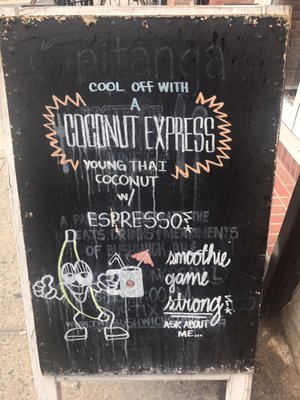 pitanga
COOL OFF WITH
A
COCONUT EXPRESS
YOUNG THAI
COCONUT
W/
ESPRESSO
smoothie
game
strong
ASK ABOUT
ME...